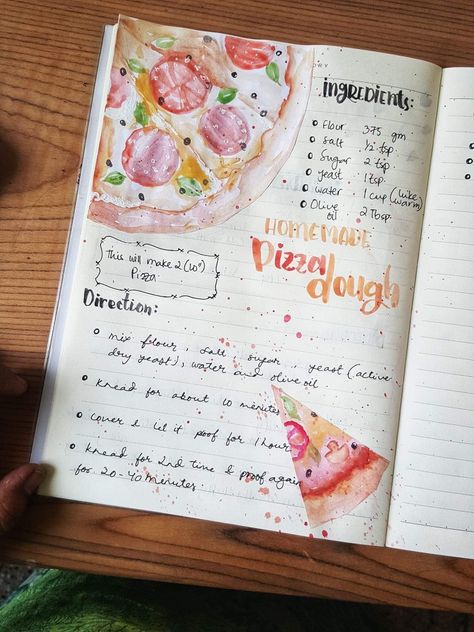 ORY
Ingredients:
Flour 375 gm
Salt ½ tsp
Sugar 2 tsp
yeast 1 tsp
water 1 cup (luke warm)
Olive oil 2 Tbsp
HOMEMADE
Pizza
dough
This will make 2 (10")
Pizza
Direction:
mix flour, salt, sugar, yeast (active
dry yeast), water and olive oil
Knead for about 10 minutes
cover & let it proof for 1 hour
Knead for 2nd time & proof again
for 20-40 minutes